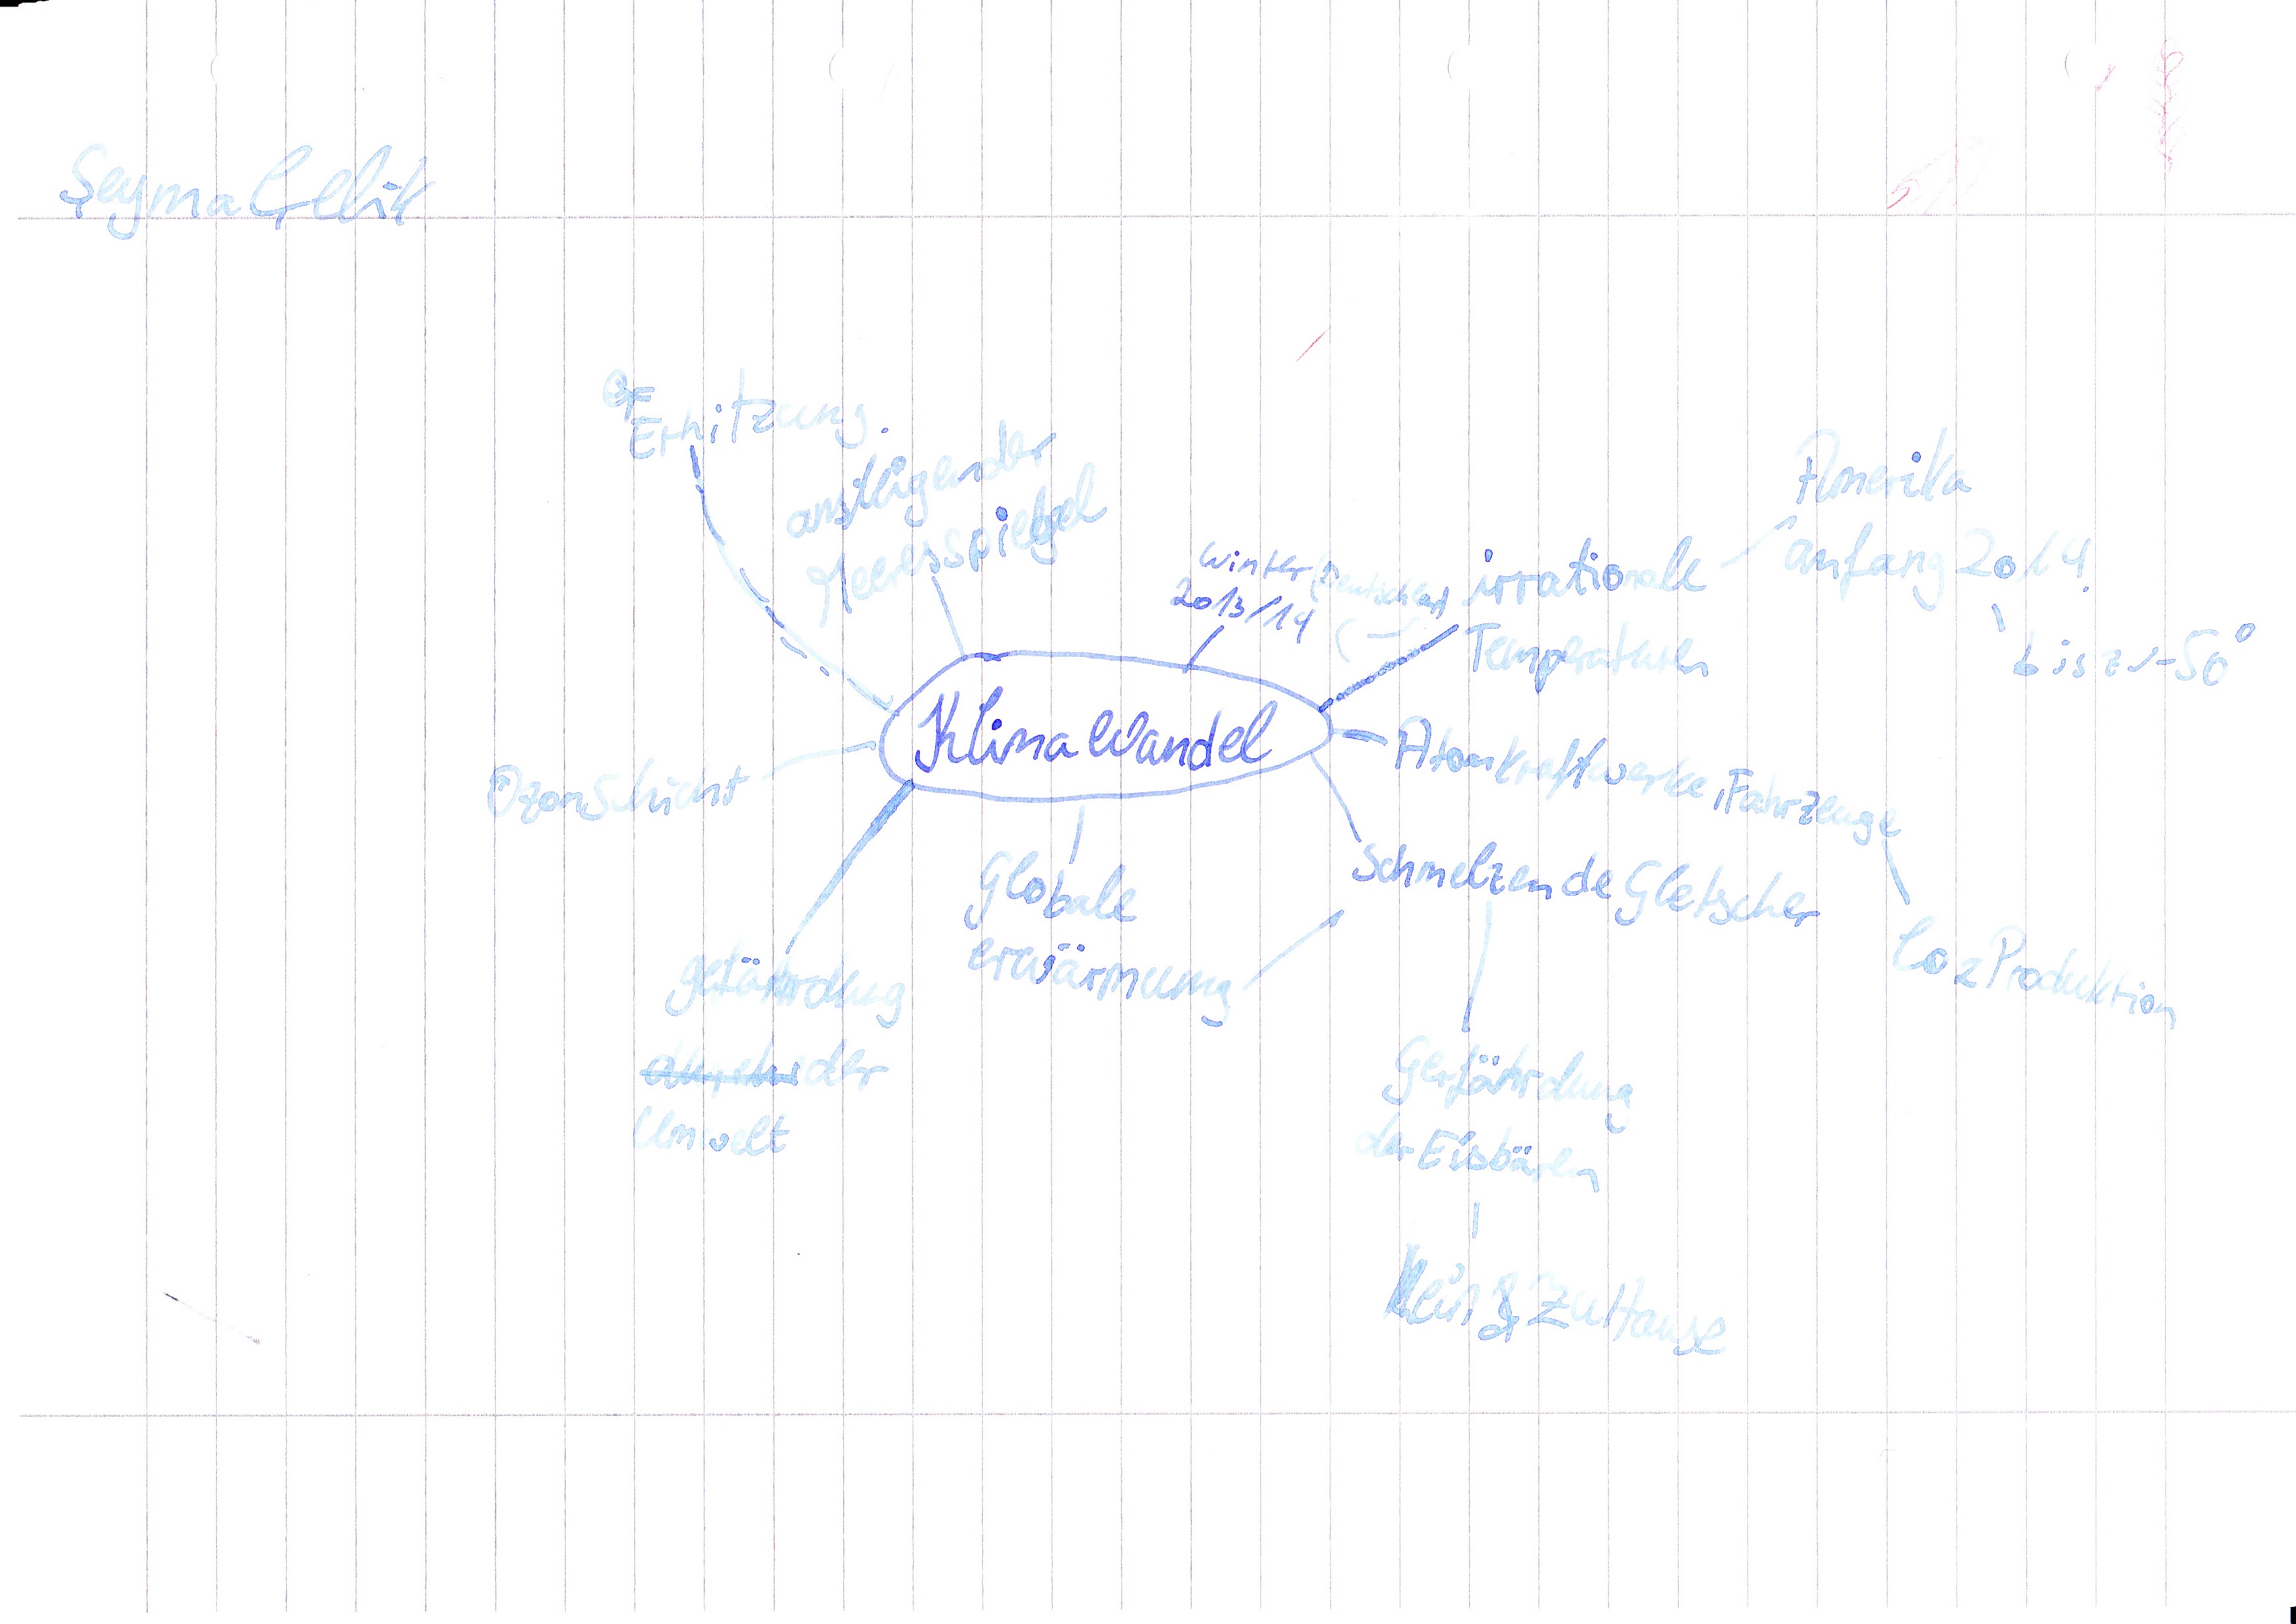 Şeyma Çelik
Erhitzung.
ansteigender
Meeresspiegel
Winter (Deutschland)
2013/14
irrationale
Temperaturen
Amerika
anfang 2014
bis zu -50°
Klima Wandel
Atomkraftwerke, Fahrzeuge
Co2 Produktion
Schmelzende Gletscher
Ozonschicht
Globale
erwärmung
gefährdung
der
Umwelt
Gefährdung
der Eisbären
Kein Zuhause